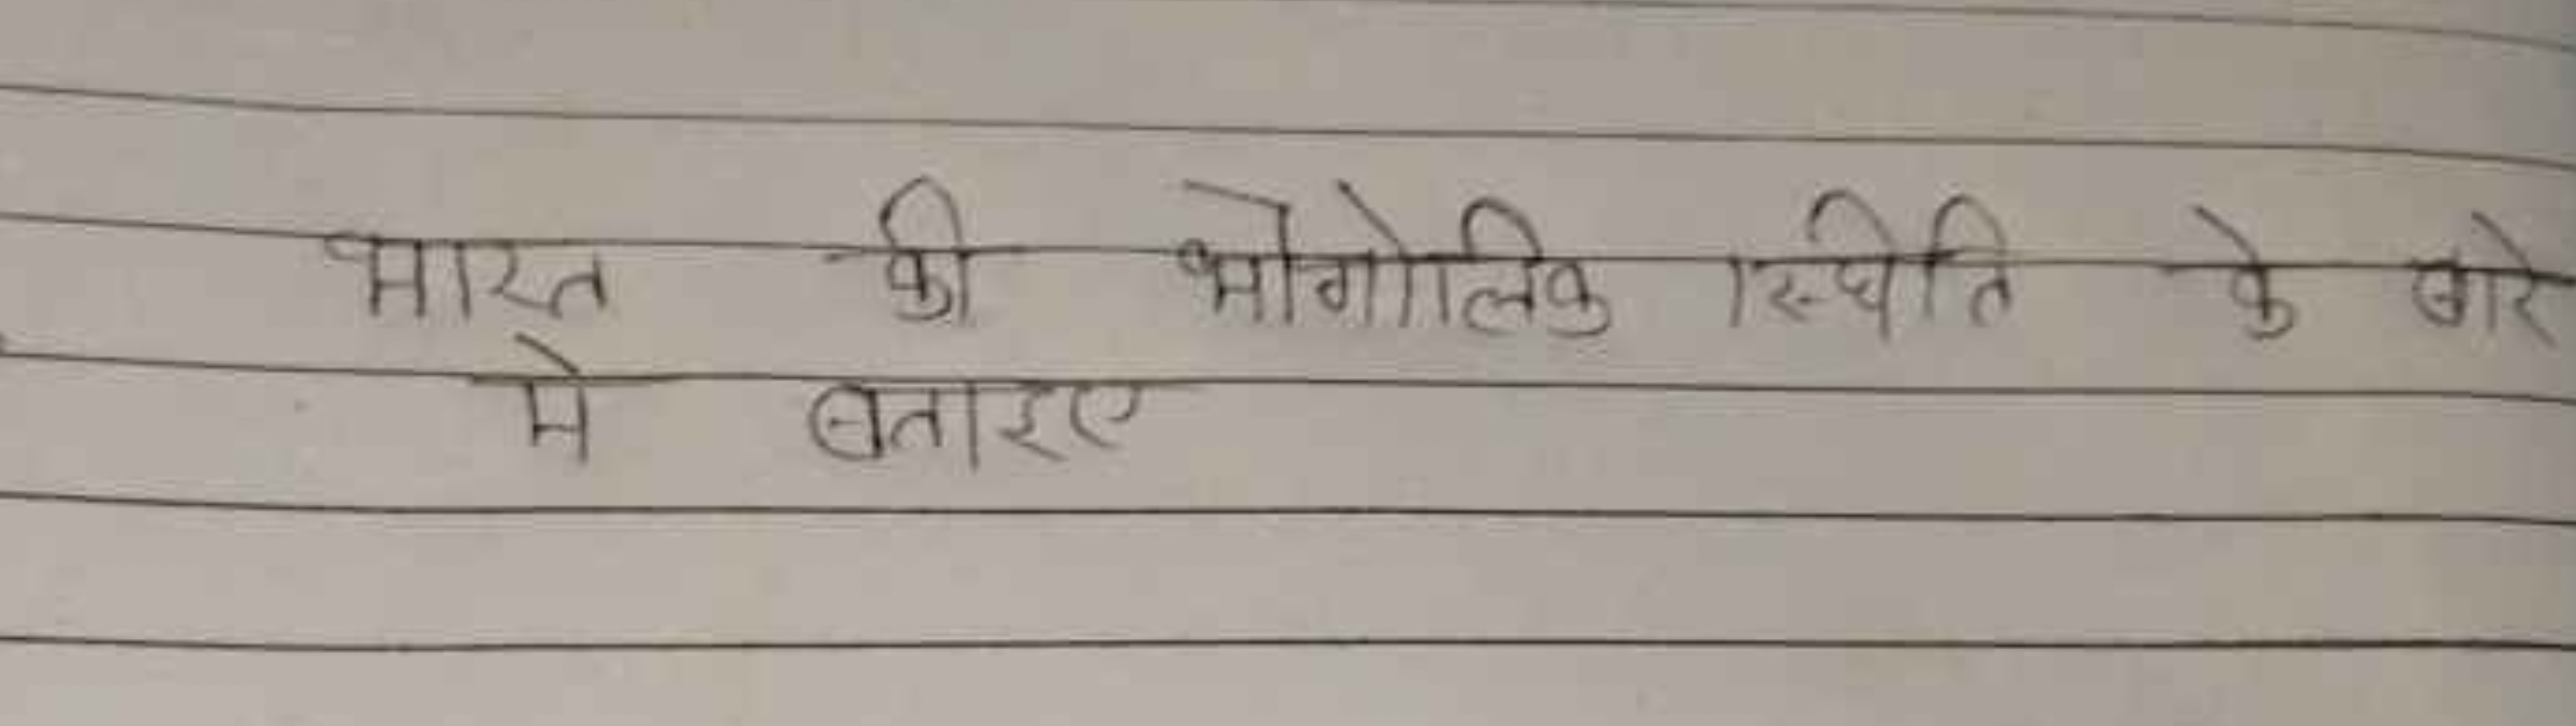 भारत की भोगोलिक स्थिति के बारे
मे बताइए